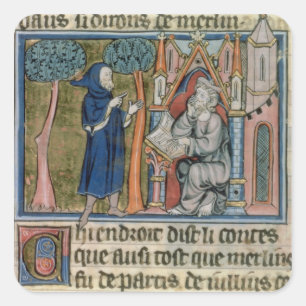 dans si dirons de merlin.
Chi endroit dist li contes
que ausi tost que merlins
fu departis de iulius ce